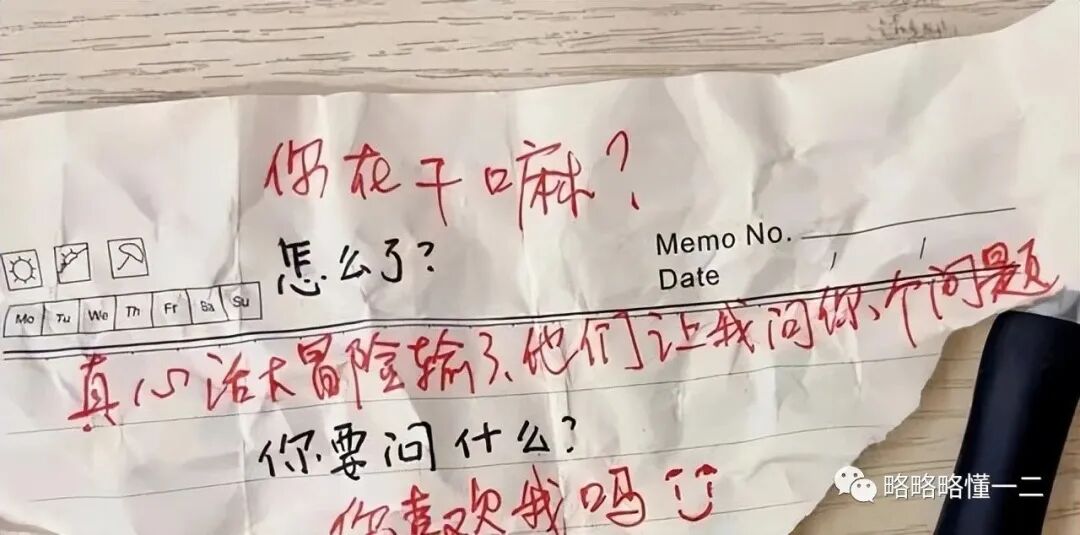 你在干嘛?
怎么了?
Memo No.
Date
Mo Tu We Th Fr Sa Su
真心话大冒险输了、他们让我问你、个问题
你要问什么?
你喜欢我吗
略略略懂一二